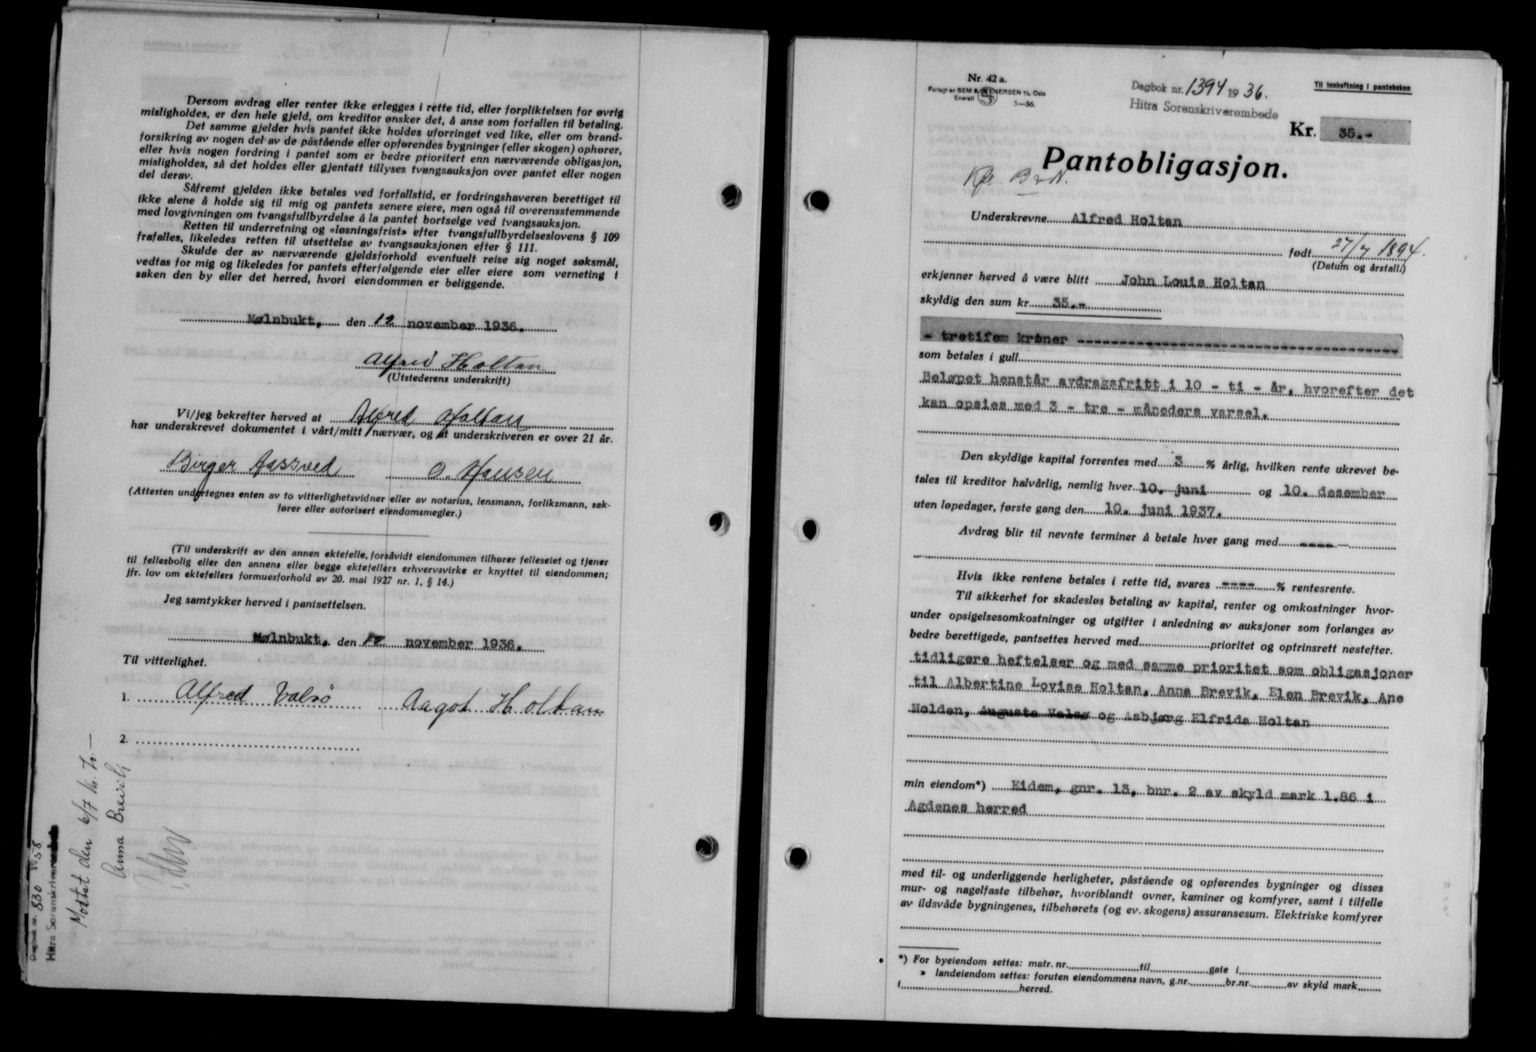 Dersom avdrag eller renter ikke erlegges i rette tid, eller forpliktelsen for øvrig
misligholdes, er den hele gjeld, om kreditor ønsker det, å anse som forfallen til betaling.
Det samme gjelder hvis pantet ikke holdes uforringet ved like, eller om brand-
forsikring av nogen del av de påstående eller opførendes bygninger (eller skogen) ophører,
eller hvis nogen fordring i pantet som er bedre prioritert enn nærværende obligasjon,
misligholdes, så det holdes eller gjentatt tillyses tvangsauksjon over pantet eller nogen
del derav.
Såfremt gjelden ikke betales ved forfallstid, er fordringshaveren berettiget til
ikke alene å holde sig til mig og pantets senere eiere, men også til overensstemmende
med lovgivningen om tvangsfullbyrdelse å la pantet bortselge ved tvangsauksjon.
Retten til underretning og «løsningsfrist» efter tvangsfullbyrdelseslovens § 109
frafalles, likeledes retten til utsettelse av tvangsauksjonen efter § 111.
Skulde der av nærværende gjeldsforhold eventuelt reise sig noget søksmål,
vedtas for mig og likeledes for pantets efterfølgende eier eller eiere som verneting i
saken den by eller det herred, hvori eiendommen er beliggende.
Mølnbukt, den 12 november 1936.
Alfred Holtan
(Utstederens underskrift)
Vi/jeg bekrefter herved at Alfred Holtan
har underskrevet dokumentet i vårt/mitt nærvær, og at underskriveren er over 21 år.
Birger Aassved O. Hansen
(Attesten undertegnes enten av to vitterlighetsvidner eller av notarius, lensmann, forliksmann, sak-
fører eller autorisert eiendomsmegler.)
(Til underskrift av den annen ektefelle, forsåvidt eiendommen tilhører felleseiet og tjener
til fellesbolig eller den annens eller begge ektefellers erhvervsvirke er knyttet til eiendommen;
jfr. lov om ektefellers formuesforhold av 20. mai 1927 nr. 1, § 14.)
Jeg samtykker herved i pantsettelsen.
Mølnbukt, den 12 november 1936.
Til vitterlighet.
1. Alfred Valsø Aagot Holtan
2.
Dagbok nr. 830 1938
Hitra Sorenskriverembede
Mottat den 6/7
Anna Brevik
Nr. 42 a.
Forlagt av SEM & STENERSEN A/S, Oslo
Enerett
5—36.
Dagbok nr. 1394 1936.
Hitra Sorenskriverembede
Til innheftning i panteboken
Kr. 35.-
Pantobligasjon.
Underskrevne Alfred Holtan
født 27/7 1894.
(Datum og årstall)
erkjenner herved å være blitt John Louis Holtan
skyldig den sum kr 35.-
- trettifem kroner ----
som betales i gull
Beløpet henstår avdragsfritt i 10 - ti - år, hvorefter det
kan opsies med 3 - tre - måneders varsel.
Den skyldige kapital forrentes med 3 % årlig, hvilken rente ukrevet be-
tales til kreditor halvårlig, nemlig hver 10. juni og 10. desember
uten løpedager, første gang den 10. juni 1937.
Avdrag blir til nevnte terminer å betale hver gang med ----
Hvis ikke rentene betales i rette tid, svares ---- % rentesrente.
Til sikkerhet for skadesløs betaling av kapital, renter og omkostninger hvor-
under opsigelsesomkostninger og utgifter i anledning av auksjoner som forlanges av
bedre berettigede, pantsettes herved med prioritet og optrinsrett nestefter.
tidligere heftelser og med samme prioritet som obligasjoner
til Albertine Lovise Holtan, Anna Brevik, Elen Brevik, Ane
Holden, Auguste Valsø og Asbjørg Elfrida Holtan
min eiendom*) Eidem, gnr. 13, bnr. 2 av skyld mark 1.86 i
Agdenes herred
med til- og underliggende herligheter, påstående og opførendes bygninger og disses
mur- og nagelfaste tilbehør, hvoriblandt ovner, kaminer og komfyrer, samt i tilfelle
av ildsvåde bygningenes, tilbehørets (og ev. skogens) assuransesum. Elektriske komfyrer
*) For byeiendom settes: matr. nr. til gate i
» landeiendom settes: foruten eiendommens navn, g.nr. br.nr. av skyld mark
i herred.